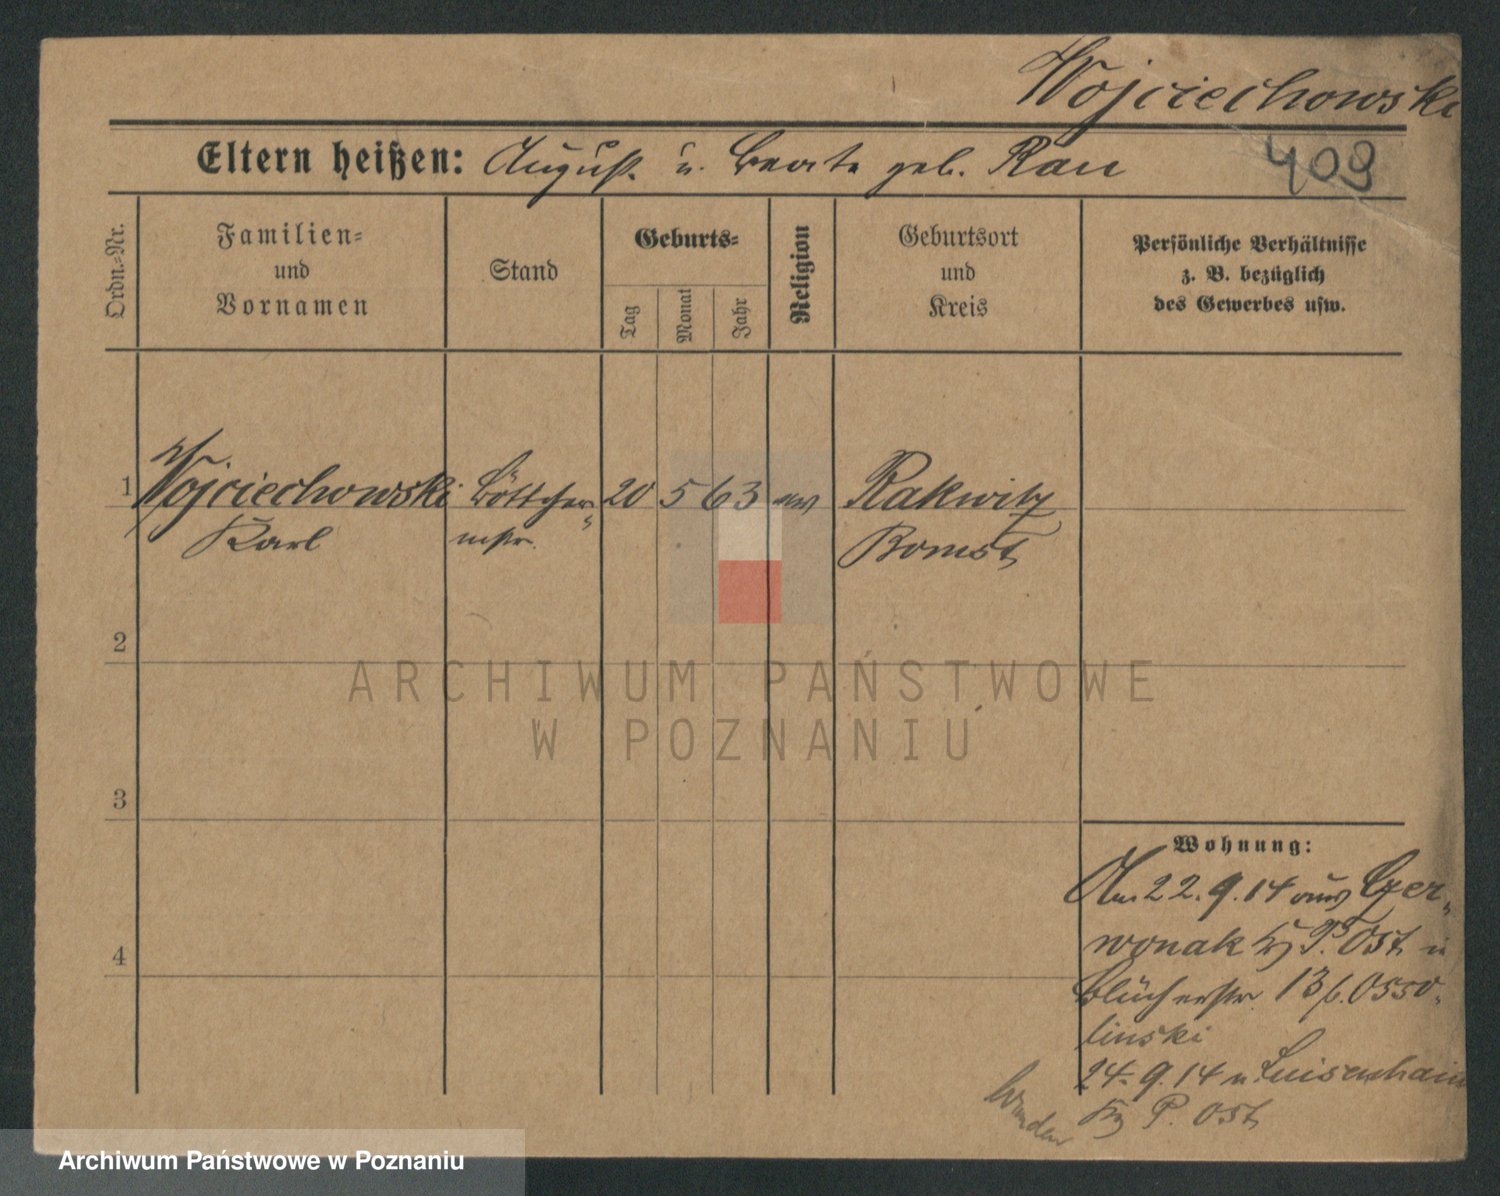 Wojciechowski
Eltern heißen: August u. Beate geb. Rau
409
Ordn.-Nr.
Familien-
und
Vornamen
Stand
Geburts-
Tag
Monat
Jahr
Religion
Geburtsort
und
Kreis
Persönliche Verhältnisse
z. B. bezüglich
des Gewerbes usw.
1 Wojciechowski Böttcher- 20 5 63 ev Rakwitz
Karl mstr. Bomst
2
3
4
Wohnung:
Am 22.9.14 aus Ger-
wonak Kr P. Ost n
Blücherstr. 13 b. Osso-
linski
24.9.14 n. Luisenhain
Kr P. Ost
ARCHIWUM PAŃSTWOWE
W POZNANIU
Archiwum Państwowe w Poznaniu